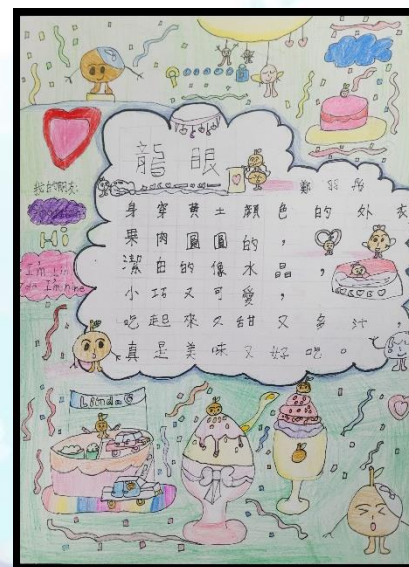 龍眼
身穿黃土顏色的外衣
果肉圓圓的，
潔白的像水晶，
小巧又可愛，
吃起來又甜又多汁，
真是美味又好吃。
我的朋友:
Hi
I'm nine
Linda